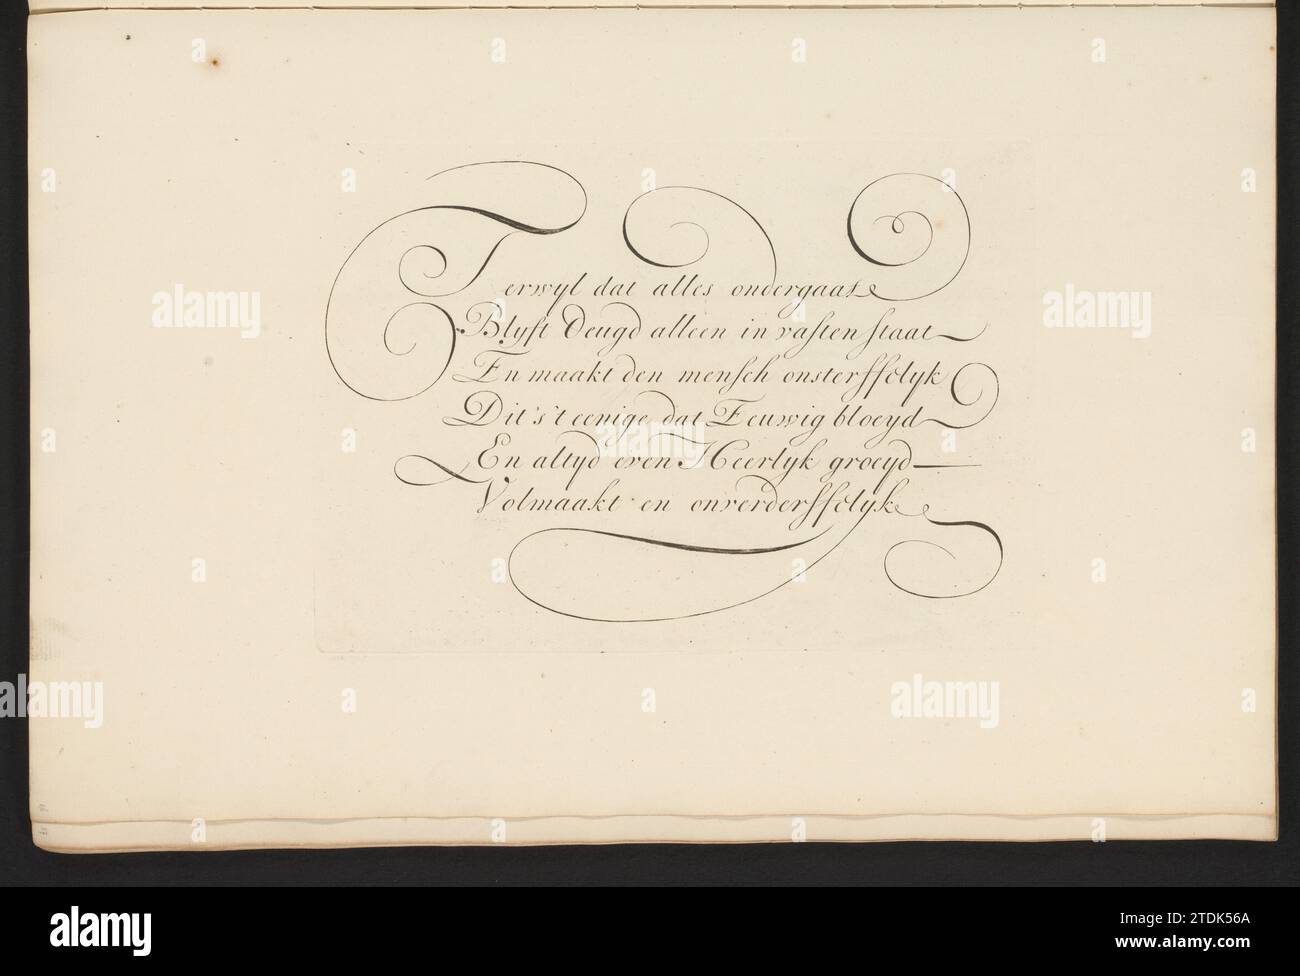 Terwyl dat alles ondergaat
Blyft deugd alleen in vasten staat
En maakt den mensch onsterffelyk
Dit 's't eenige dat Eeuwig bloeyd
En altyd even Heerlyk groeyd
Volmaakt en onverderffelyk
alamy
Image ID: 2TDK56A
www.alamy.com